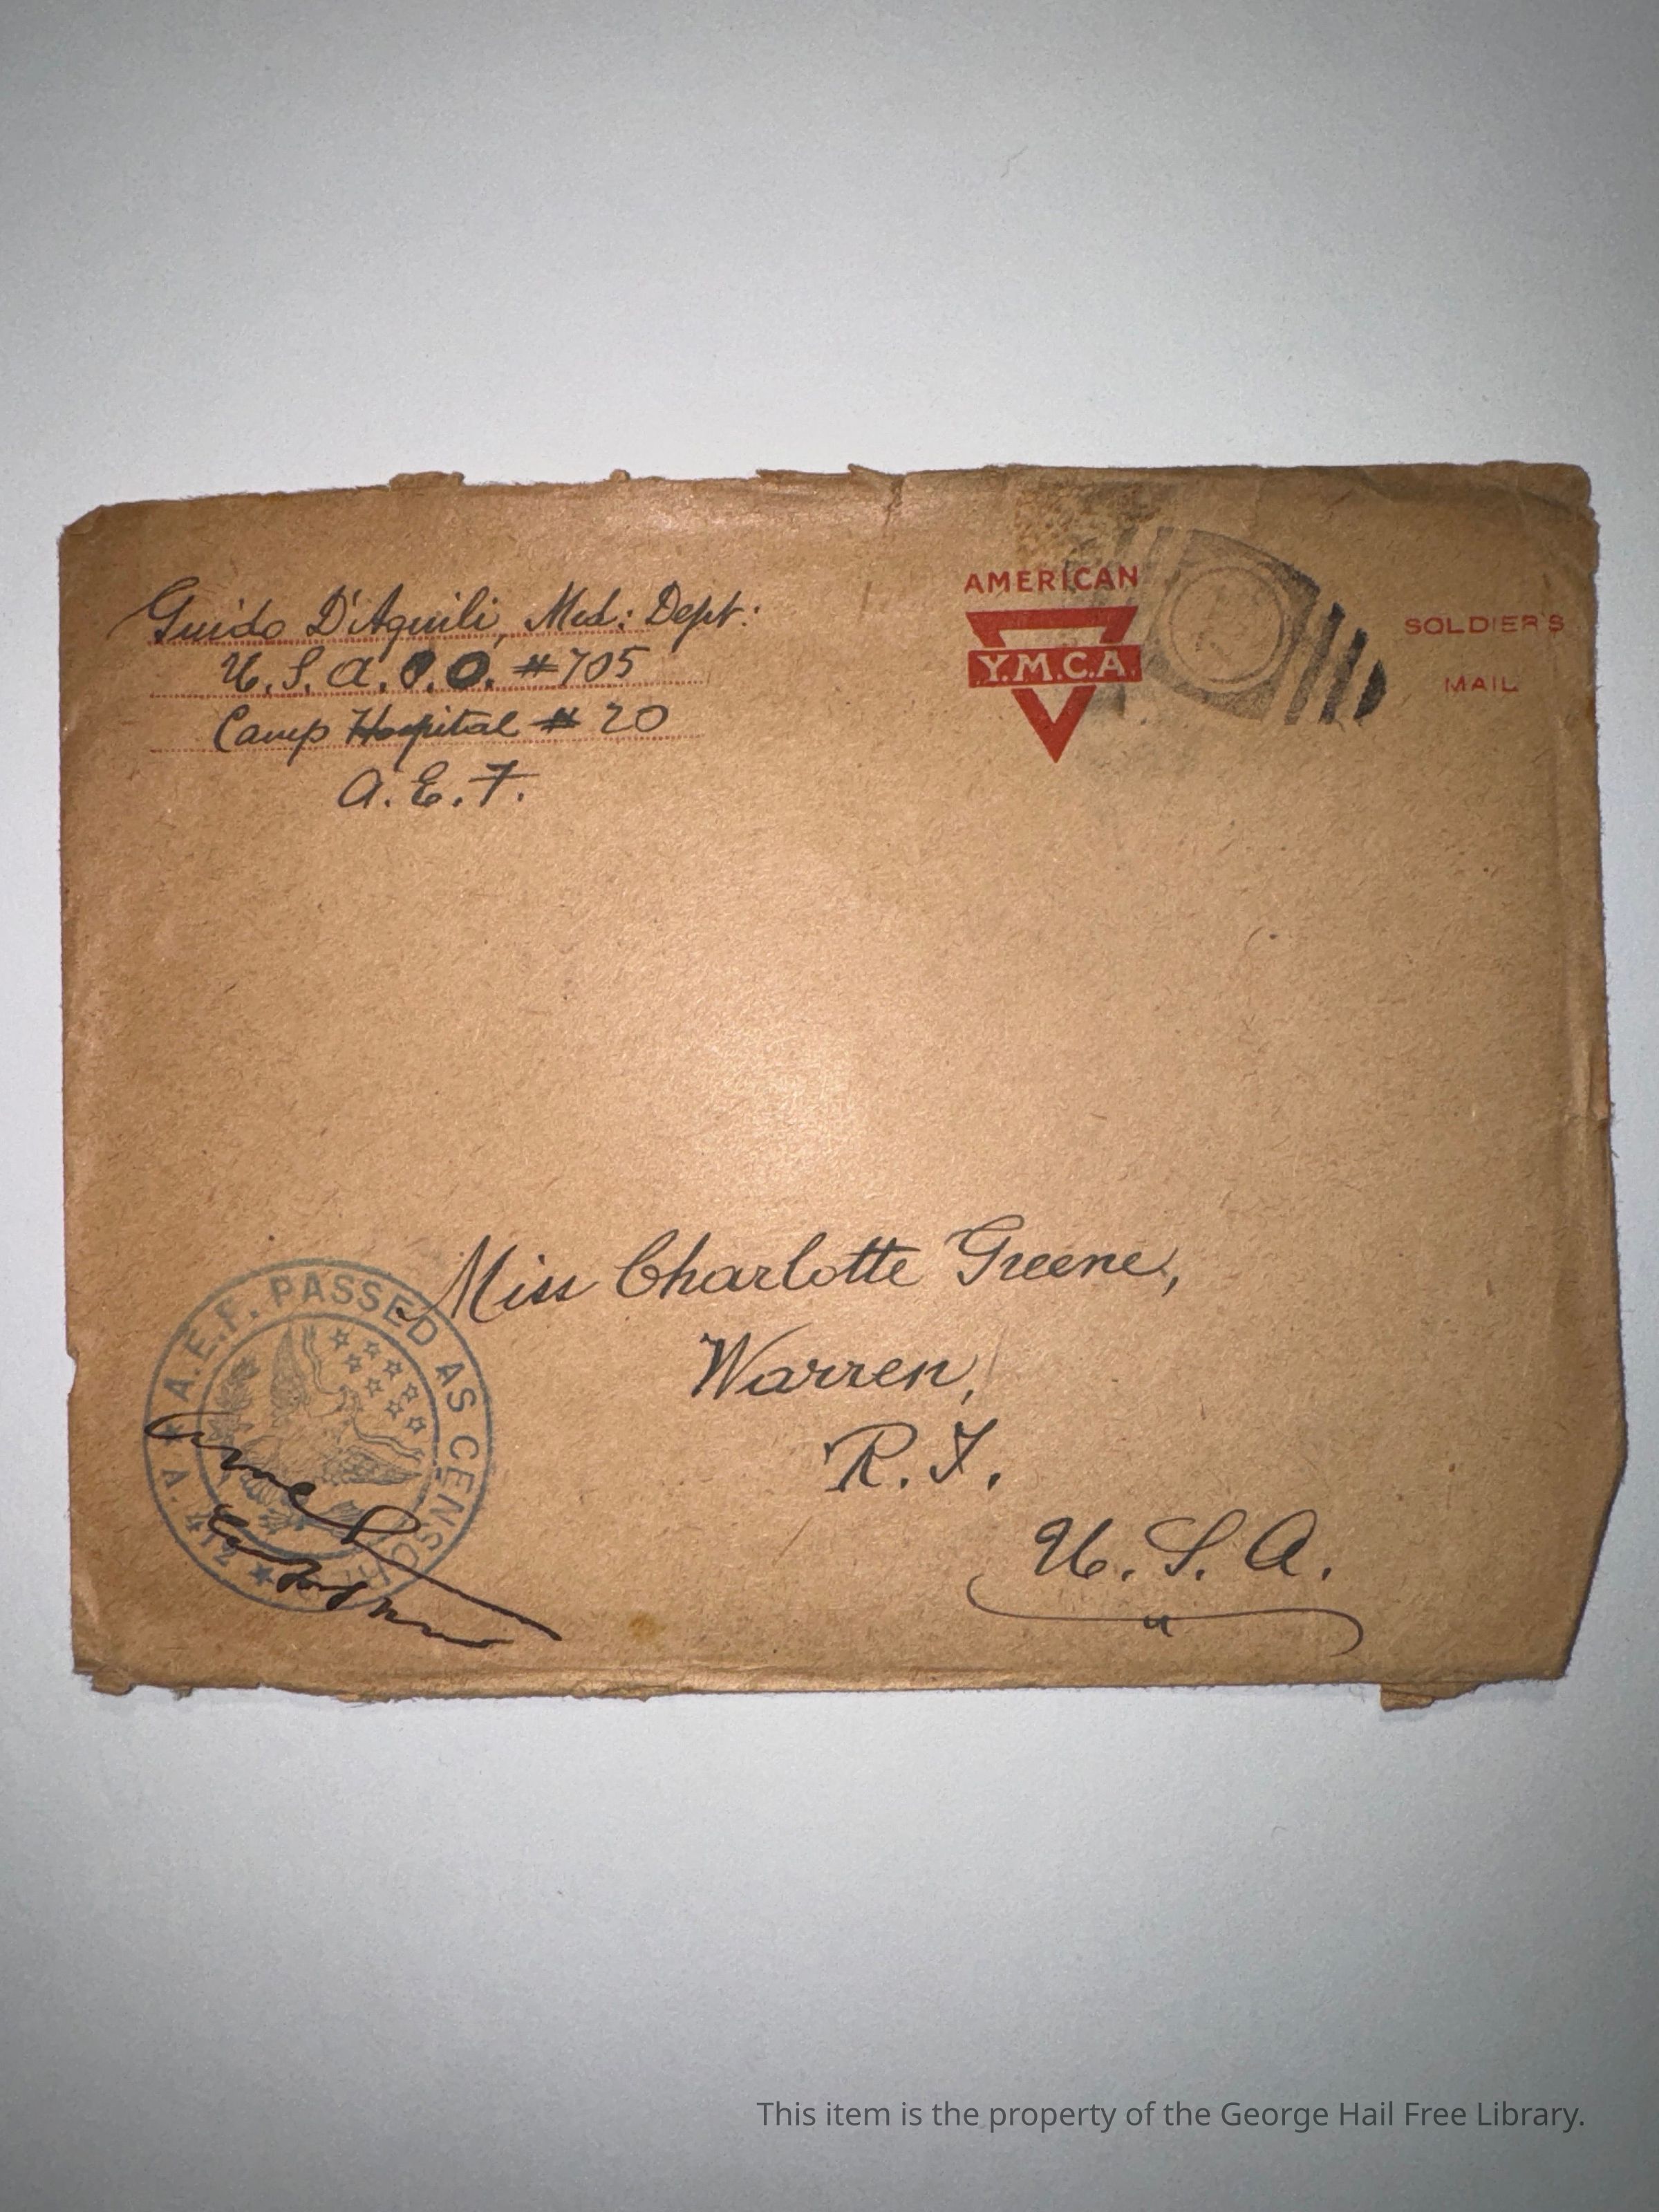 Guido D'Aquili, Med: Dept:
U.S.A.P.O. #705
Camp Hospital # 20
A.E.F.
AMERICAN
Y.M.C.A.
SOLDIER'S
MAIL
Miss Charlotte Greene,
Warren,
R.I.
U.S.A.
A.E.F. PASSED AS CENSORED
This item is the property of the George Hail Free Library.